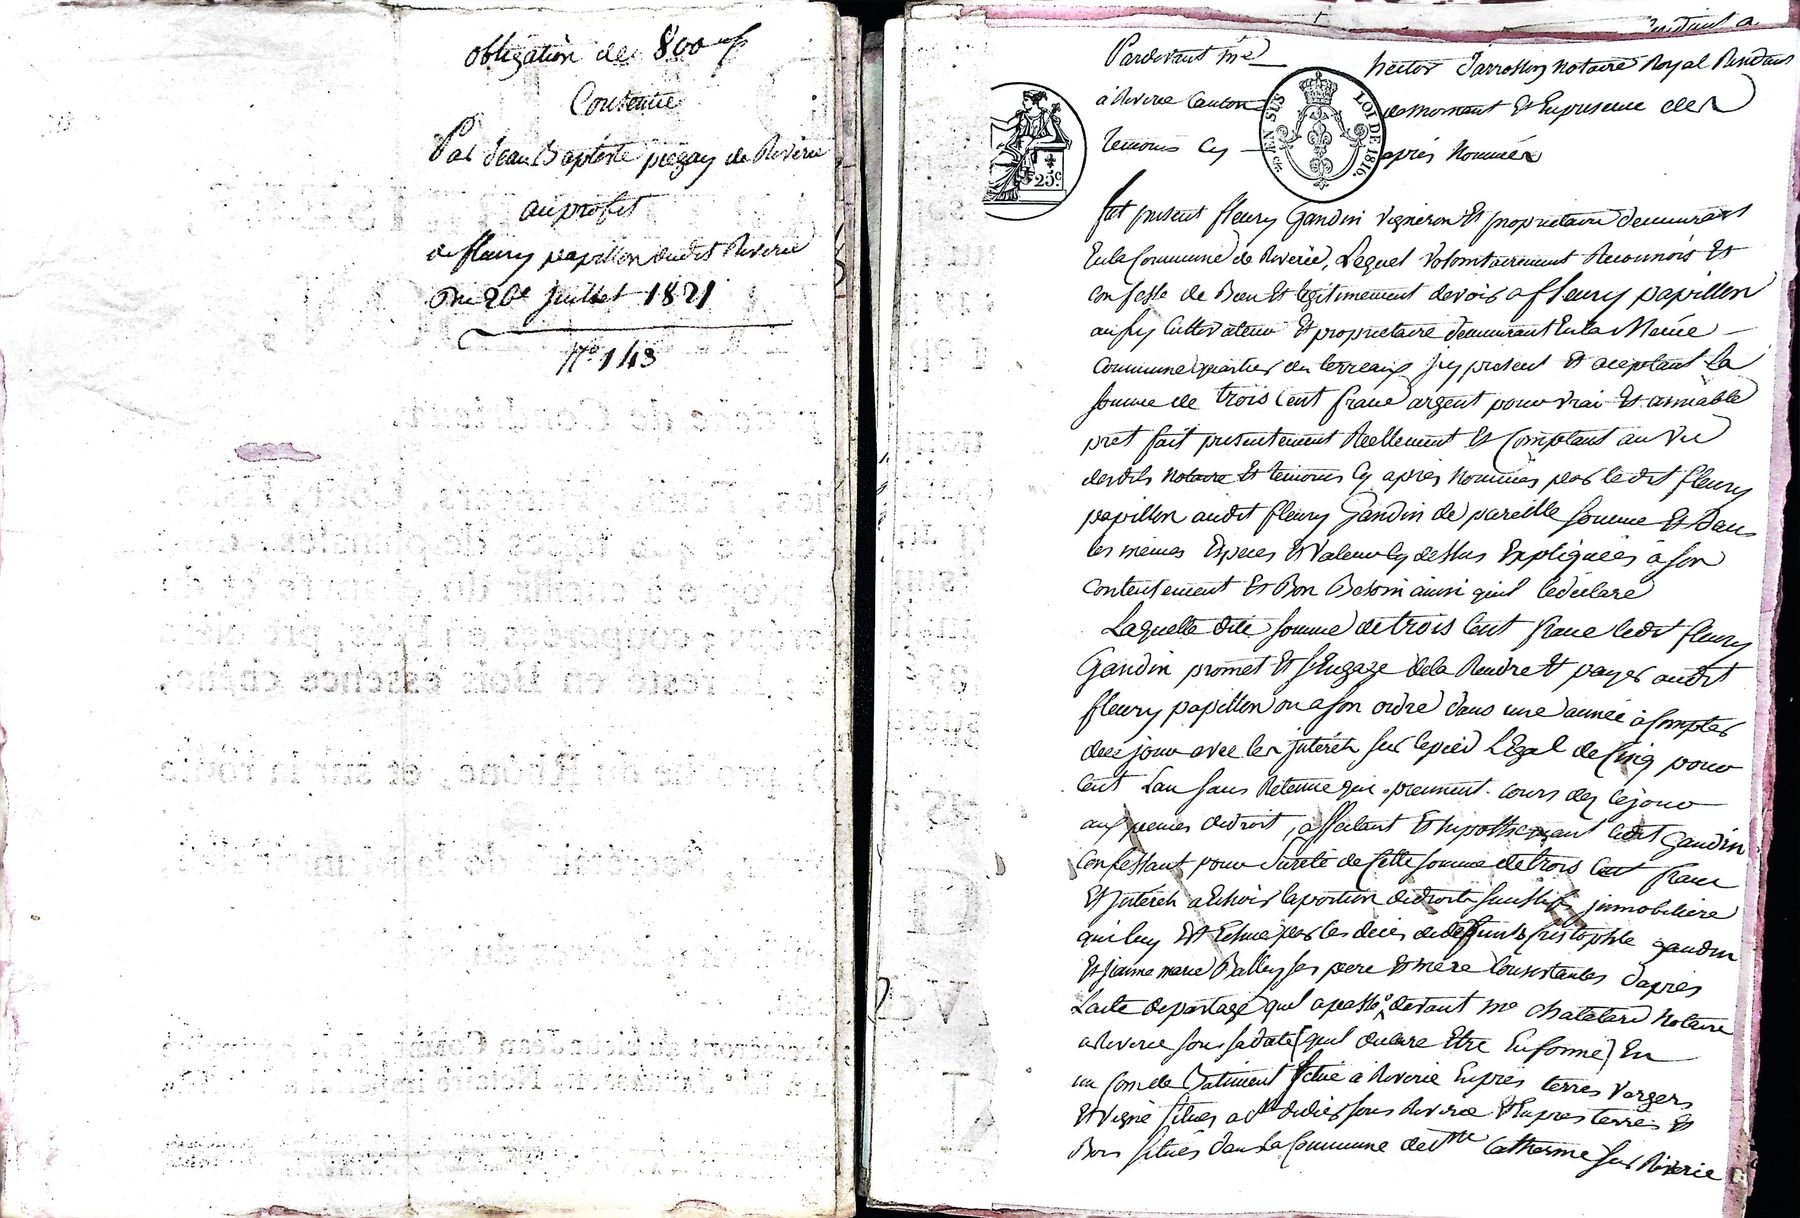 obligation de 800 ff
Consentie
Par Jean Baptiste pizay de Riverie
au profit
de fleury papillon dudit Riverie
Du 26e juillet 1821
N° 143
Pardevant me hector Jarrosson notaire Royal Residant
à Riverie Canton de mornant Et En presence des
temoins Cy après Nommés
25c
EN SUS
LOI DE 1816.
fut present fleury Gandin vigneron Et proprietaire demeurant
En la Commune de Riverie, Lequel volontairement Reconnois Et
confesse de Bien Et legitimement devoir a fleury papillon
aussy Cultivateur Et proprietaire demeurant En la Meme
Commune quartier des terreaux Jcy present Et aceptant La
somme de trois Cent franc argent pour vrai Et amiable
pret fait presentement Reellement Et Comptant au vu
desdits notaire Et temoins Cy après Nommés par ledit fleury
papillon audit fleury Gandin de pareille somme Et Dans
les mêmes Especes Et Valeur Cy dessus Expliquées à son
contentement Et Bon Besoin ainsi quil le déclare
Laquelle dite somme de trois Cent franc ledit fleury
Gandin promet Et s'Engage de la Rendre Et payer audit
fleury papillon ou a son ordre dans une année à Compter
de ce jour avec les jnterêts sur le pied Légal de Cinq pour
Cent L'an sans Retenue qui prennent cours dez ce jour
aux peines de droit, affectant Et hypothequant ledit Gandin
Confessant pour Sureté de Cette somme de trois Cent franc
Et jnterêts a Echoir la portion de droits successifs jmmobiliere
qui luy Est Echue par les décès de defunts Cristophle gandin
Et jeanne marie Balley ses pere Et mere Consistantes d'après
L'acte de partage qu'il a passé devant me chatelard Notaire
a Riverie sous sa date (quil declare Etre En forme) En
un corps de Batiment Situé à Riverie En près terres Vergers
Et vigne situés a St didier sous Riverie Et En pres terres Et
Bois situés dans La Commune de Ste Catherine sur Riverie